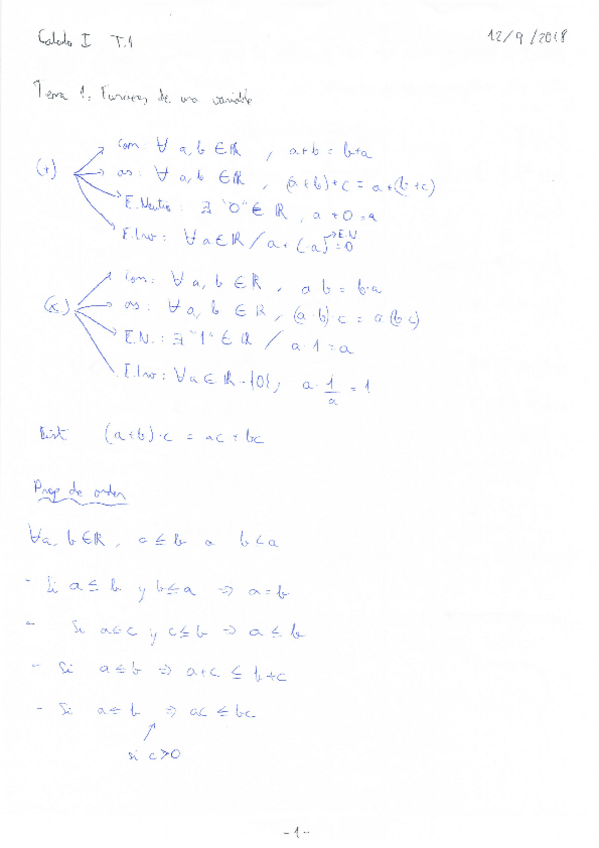 Calculo I T.1 12/9/2018
Tema 1: Funciones de una variable
(+)
Com: ∀ a, b ∈ ℝ, a+b = b+a
as: ∀ a, b ∈ ℝ, (a+b)+c = a+(b+c)
E.Neutro: ∃ "0" ∈ ℝ, a+0=a
E.Inv: ∀a∈ℝ / a+(-a)=0 →E.N
(x)
Com: ∀ a, b ∈ ℝ, a·b = b·a
as: ∀ a, b ∈ ℝ, (a·b)·c = a·(b·c)
E.N.: ∃ "1" ∈ ℝ / a·1=a
E.Inv: ∀a∈ℝ-{0}, a·1/a = 1
Dist (a+b)·c = ac+bc
Prop de orden
∀a, b∈ℝ, a≤b o b<a
- Si a≤b y b≤a ⇒ a=b
- Si a≤c y c≤b ⇒ a≤b
- Si a≤b ⇒ a+c ≤ b+c
- Si a≤b ⇒ ac ≤ bc
si c>0
-1-